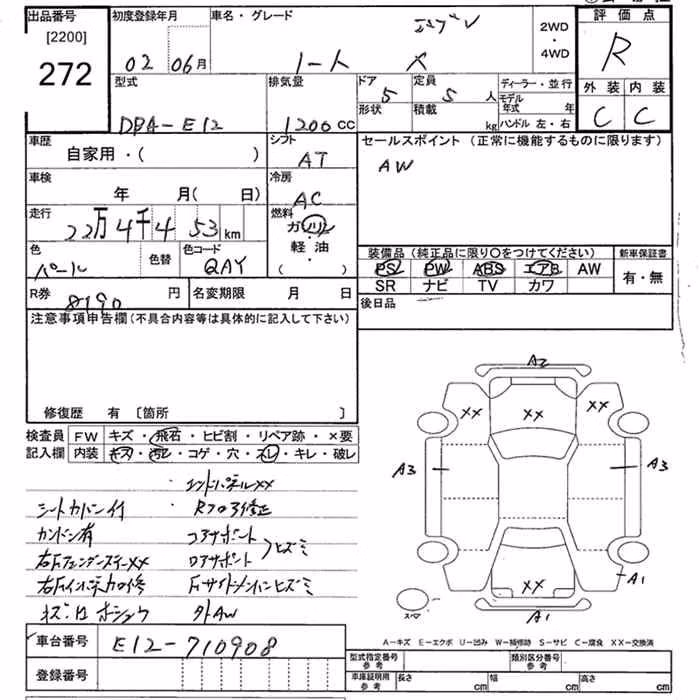 出品番号
[2200]
272
初度登録年月
02 06月
車名・グレード
ノート X
2WD
・
4WD
評価点
R
外装 内装
C C
型式
DBA-E12
排気量
1200cc
ドア
5
形状
定員
5人
積載
kg
ディーラー・並行
モデル
年式 年
ハンドル 左・右
車歴
自家用・( )
シフト
AT
セールスポイント(正常に機能するものに限ります)
AW
車検
年 月( 日)
冷房
AC
走行
22万4千453km
燃料
ガソリン
軽・油
( )
色
パール
色替
色コード
QAY
装備品(純正品に限り〇をつけてください)
PS PW ABS エアB AW
SR ナビ TV カワ
新車保証書
有・無
R券
8190円
名変期限 月 日
後日品
注意事項申告欄(不具合内容等は具体的に記入して下さい)
修復歴 有 [箇所 ]
検査員
記入欄
FW キズ・飛石・ヒビ割・リペア跡・×要
内装 キズ・汚レ・コゲ・穴・スレ・キレ・破レ
エンドパネルXX
シートカバー付
Rフロア修正
カンバン有
コアサポート
ロアサポート
ヒズミ
右FフェンダーステーXX
右Fインパネ穴修
Fサイドメンバーヒズミ
外AW
A2
XX XX XX
A3 A3
XX
A1
A1
スペア
A-キズ E-エクボ U-凹み W-補修跡 S-サビ C-腐食 XX-交換済
車台番号
E12-710908
登録番号
型式指定番号
参考
類別区分番号
参考
車庫証明用
参考
長さ cm
幅 cm
高さ cm